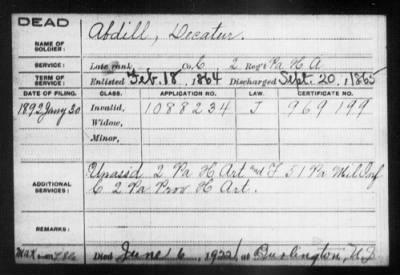 DEAD
NAME OF SOLDIER: Abdill, Decatur.
SERVICE: Late rank, Co. C 2 Reg't Pa H A
TERM OF SERVICE: Enlisted Feb. 18, 1864 Discharged Sept. 20, 1865
DATE OF FILING. CLASS. APPLICATION NO. LAW. CERTIFICATE NO.
1892 Jany 30 Invalid, 1088234 J 969199
Widow,
Minor,
ADDITIONAL SERVICES: Unassd 2 Pa H Art and F 51 Pa Mil Inf
C 2 Pa Prov H Art.
REMARKS:
Died June 6, 1922, at Burlington, N.J.